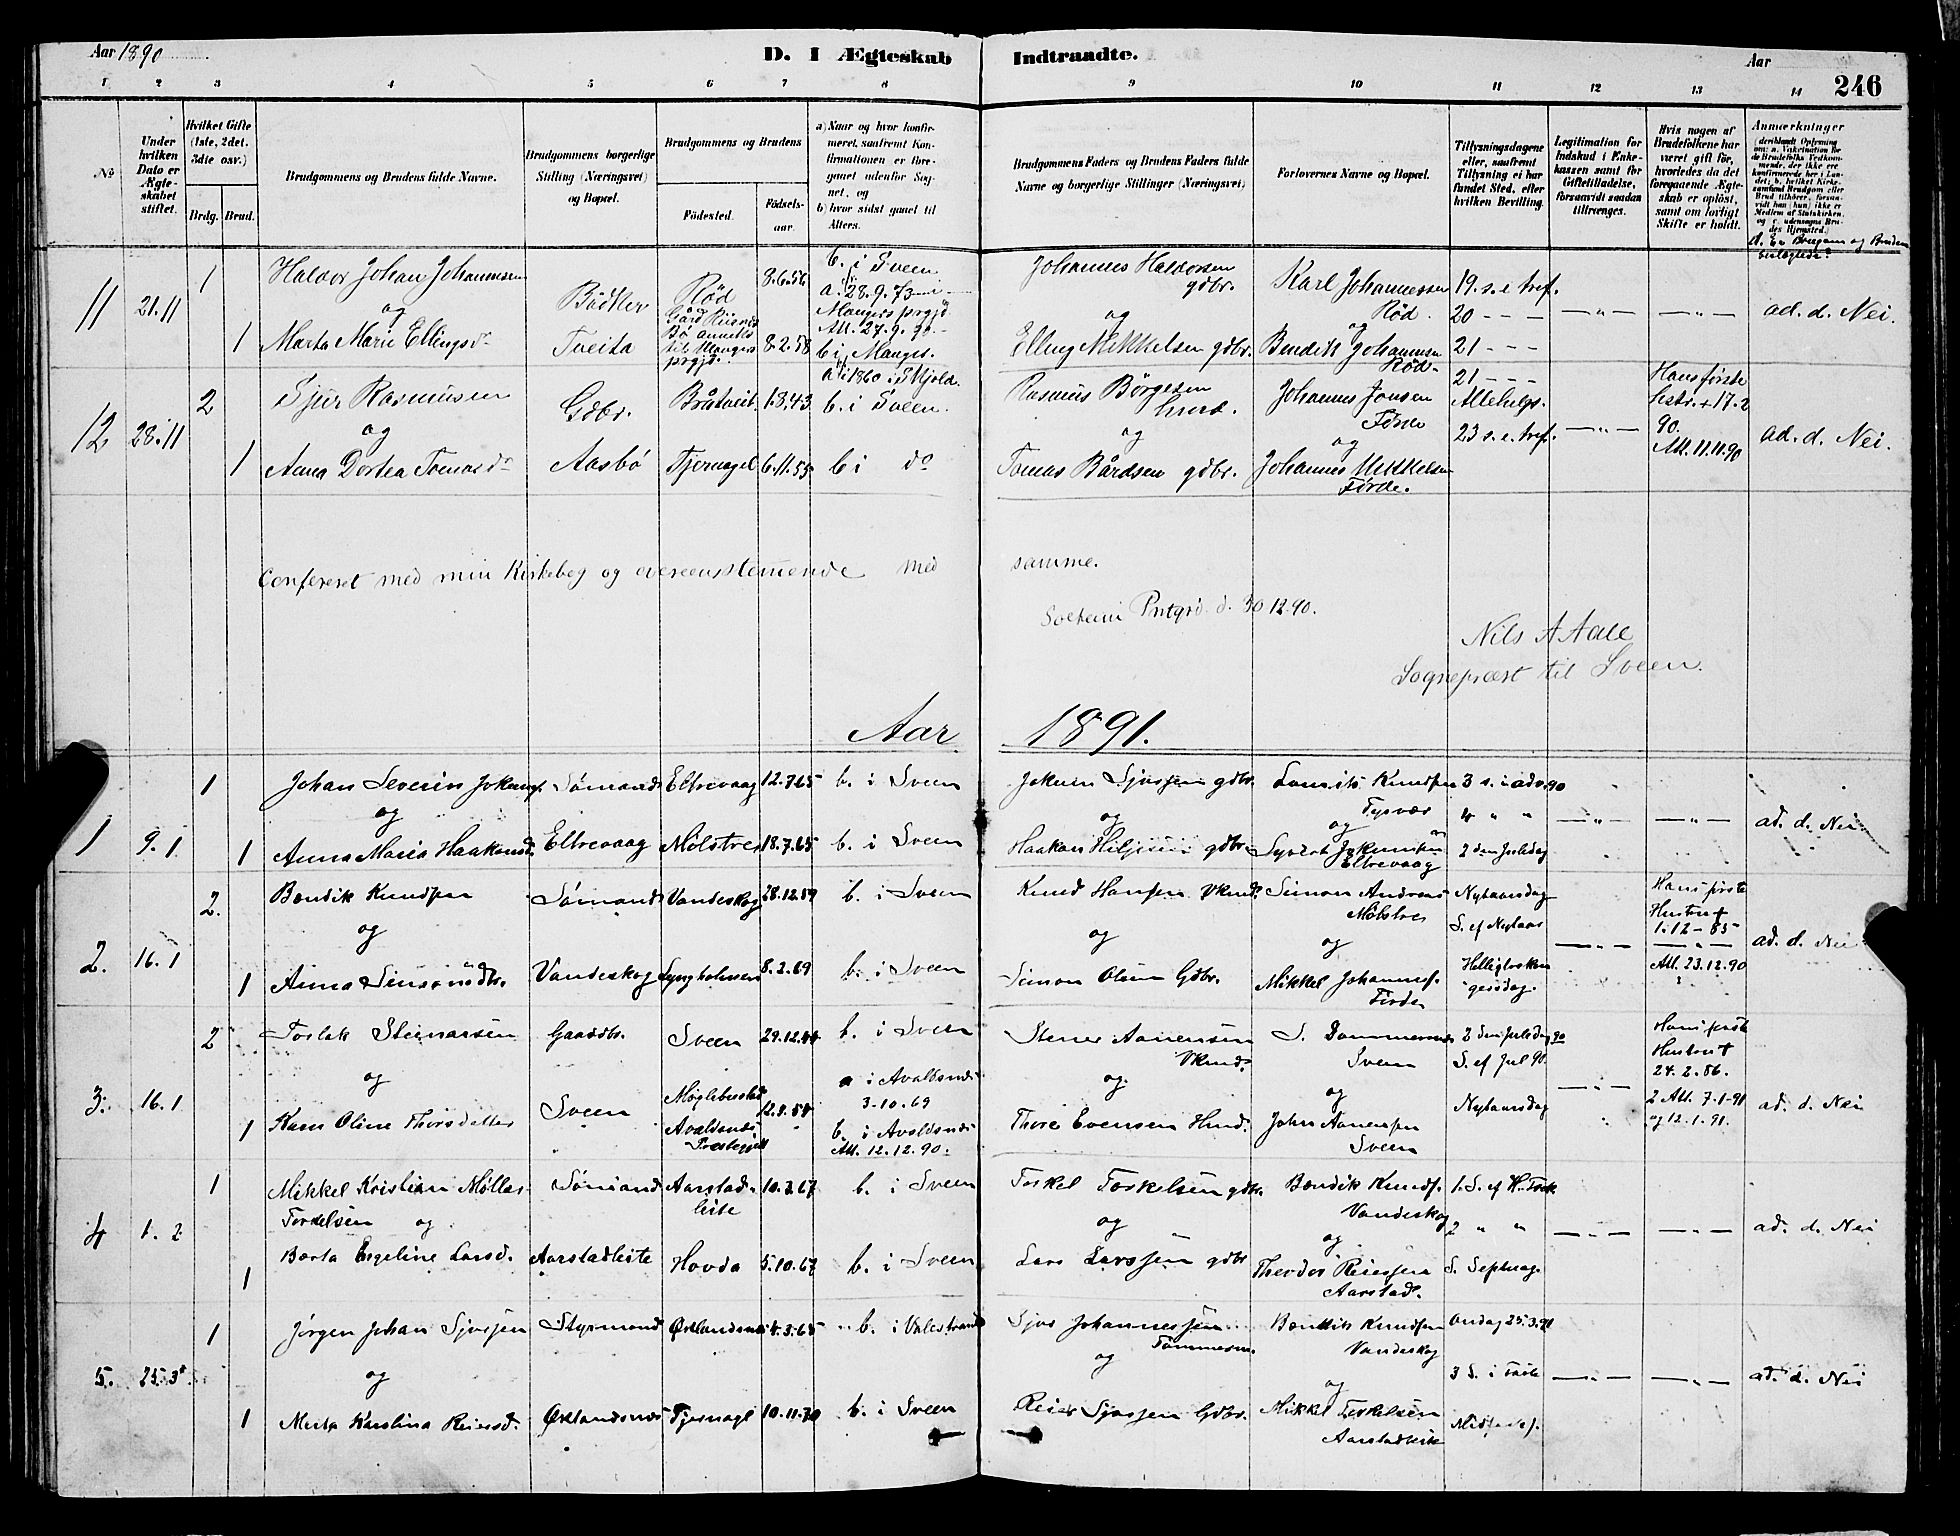 Aar 1890
D. I Ægteskab Indtraadte.
Aar
246
1 2 3 4 5 6 7 8 9 10 11 12 13 14
No
Under hvilken Dato er Ægteskabet stiftet.
Hvilket Gifte (1ste, 2det, 3die osv.)
Brdg. Brud.
Brudgommens og Brudens fulde Navne.
Brudgommens borgerlige Stilling (Næringsvei) og Bopæl.
Brudgommens og Brudens
Fødested. Fødsels-aar.
a) Naar og hvor konfirmeret, saafremt Konfirmationen er foregaaet udenfor Sognet, og
b) hvor sidst gaaet til Alters.
Brudgommens Faders og Brudens Faders fulde Navne og borgerlige Stillinger (Næringsvei)
Forlovernes Navne og Bopæl.
Tillysningsdagene eller, saafremt Tillysning ei har fundet Sted, efter hvilken Bevilling.
Legitimation for Indskud i Enkekassen samt for Giftetilladelse, forsaavidt saadan tiltrænges.
Hvis nogen af Brudefolkene har været gift før, hvorledes da det foregaaende Ægteskab er opløst, samt om lovligt Skifte er holdt.
Anmærkninger
(deriblandt Oplysning om: a. Vakcination for de Brudefolks Vedkommende, der ikke ere konfirmerede her i Landet; b. hvilket Kirkesamfund Brudgom eller Brud tilhører, forsaavidt han (hun) ikke er Medlem af Statskirken, og c. udensogns Brudes Hjemsted.)
d. Er Brudgom og Bruden beslægtede?
11 21.11 1 Haldor Johan Johannesen Bødker Rød 8.6.56 b. i Sveen Johannes Haldorsen gdbr. Karl Johannessen Rød. 19. s. e. tref.
og a. 28.9.73 i Mangers prgjd. Att. 27.9.90 og og 20 — — — —"— —"— ad. d. Nei.
1 Marta Marie Ellingsdr Tveita Gård Risnes Bø annexs til Mangers prgjd. 8.2.58 b i Manger. Elling Mikkelsen gdbr. Bendik Johannesen Rød. 21 — — —
12 28.11 2 Sjur Rasmussen Gdbr. Bråtveit 1.3.43 a i 1860 i Skjold. b. i Sveen. Rasmus Børgesen husm. Johannes Jonsen Førde 21 — — — Allehelgs. Hans første hustr. + 17.2 90. Att. 11.11.90
og og og 23 s. e. tref. —"— ad. d. Nei.
1 Anna Dortea Tomasdr Aasbø Tjernagel 6.11.55 b i do Tomas Bårdsen gdbr. Johannes Mikkelsen Førde.
Confereret med min Kirkebog og overensstemmende med samme.
Sveen Prstgrd. d. 30 12.90.
Nils A Aale
Sogneprest til Sveen.
Aar 1891.
1 9.1 1 Johan Severin Jokums. Sømand Eltrevaag 12.7.65 b. i Sveen Jokum Sjursen gdbr. Knudsen Tysvær 3 s. i adv. 90
og og og 4 " " —"— —"— ad. d. Nei
1 Anna Maria Haakonsd. Eltrevaag Mølstre 18.7.65 b. i Sveen Haakon gdbr. Syvert Jokumsen Eltrevaag 2den Juledag
2. 16.1 2. Bendik Knudsen Sømand Vandeskog 28.12.59 b. i Sveen Knud Hansen Simon Andreas Mølstre Nytaarsdag S. ef Nytaar Hans første Hustru + 1.12-85
og og og —"— —"— ad. d. Nei
1 Anna Simonsdtr. Vandeskog Lyngholmen 8.2.69 b. i Sveen Simon Olsen Gdbr. Mikkel Johannes. Førde Helligtrekongersdag. Att. 23.12.90
3. 16.1 2 Torlak Steinarsen Gaardbr. Sveen 29.12.44 b. i Sveen Stener Aanensen S. Dommersnes Sveen 2den Juledag 90 S. ef Jul 90. Hans første Hustru + 24.2.86.
og a i Avaldsnes 3-10.69 og og —"— 2 Att. 7-1-91 og 12.1.91. ad. d. Nei
1 Karn Oline Thorsdatter Sveen Avaldsnes Prestegjeld b. i Avaldsnes Att. 12.12.90. Thore Evensen Husm. John Aanensen Sveen Nytaarsdag
4 1.2 1 Mikkel Kristian Møller Torkelsen og Sømand Aarstadleite 10.3.67 b. i Sveen Torkel Torkelsen gdbr. Bendik Knuds. Vandeskog 1. S. ef H. Trek.
og og 2 " " —"— —"— ad. d. Nei
1 Berta Engeline Larsd. Aarstadleite Hovda 5.10.67 b. i Sveen Lars Larssen gdbr Theodor Reiersen Aarstad. S. Septuag.
5. 25.3 1 Jørgen Johan Sjursen Styrmand Øklandsnes 4.3.65 b. i Valestrand Sjur Johannessen Tømmernes Bendik Knudsen Vandeskog Onsdag 25.3.91
og og og 3 S. i Faste —"— —"— ad. d. Nei
1 Marta Karolina Reiersd. Øklandsnes Tjernagl 10.11.70 b. i Sveen Reier Sjursen Gdbr. Mikkel Torkelsen Aarstadleite Midfastes.